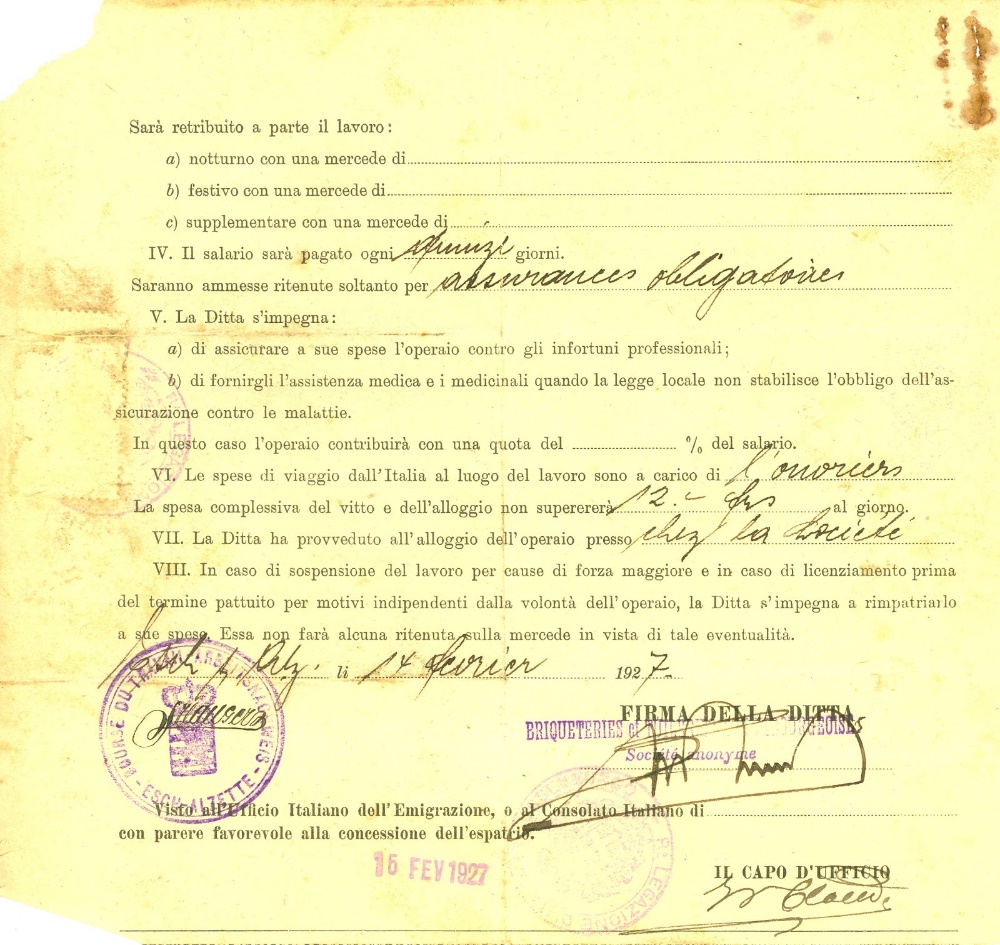 Sarà retribuito a parte il lavoro:
a) notturno con una mercede di
b) festivo con una mercede di
c) supplementare con una mercede di
IV. Il salario sarà pagato ogni quinzi giorni.
Saranno ammesse ritenute soltanto per assurances obligatoires
V. La Ditta s'impegna:
a) di assicurare a sue spese l'operaio contro gli infortuni professionali;
b) di fornirgli l'assistenza medica e i medicinali quando la legge locale non stabilisce l'obbligo dell'as-
sicurazione contro le malattie.
In questo caso l'operaio contribuirà con una quota del % del salario.
VI. Le spese di viaggio dall'Italia al luogo del lavoro sono a carico di l'ouvriers
La spesa complessiva del vitto e dell'alloggio non supererà 12.- frs al giorno.
VII. La Ditta ha provveduto all'alloggio dell'operaio presso chez la Société
VIII. In caso di sospensione del lavoro per cause di forza maggiore e in caso di licenziamento prima
del termine pattuito per motivi indipendenti dalla volontà dell'operaio, la Ditta s'impegna a rimpatriarlo
a sue spese. Essa non farà alcuna ritenuta sulla mercede in vista di tale eventualità.
Esch s/ Alz. li 14 fevrier 1927.-
FIRMA DELLA DITTA
BRIQUETERIES et
Société anonyme
BOURSE DU TRAVAIL ARBEITSNACHWEIS
- ESCH-ALZETTE -
Visto all'Ufficio Italiano dell'Emigrazione, o al Consolato Italiano di
con parere favorevole alla concessione dell'espatrio.
15 FEV 1927
LEGAZIONE
IL CAPO D'UFFICIO